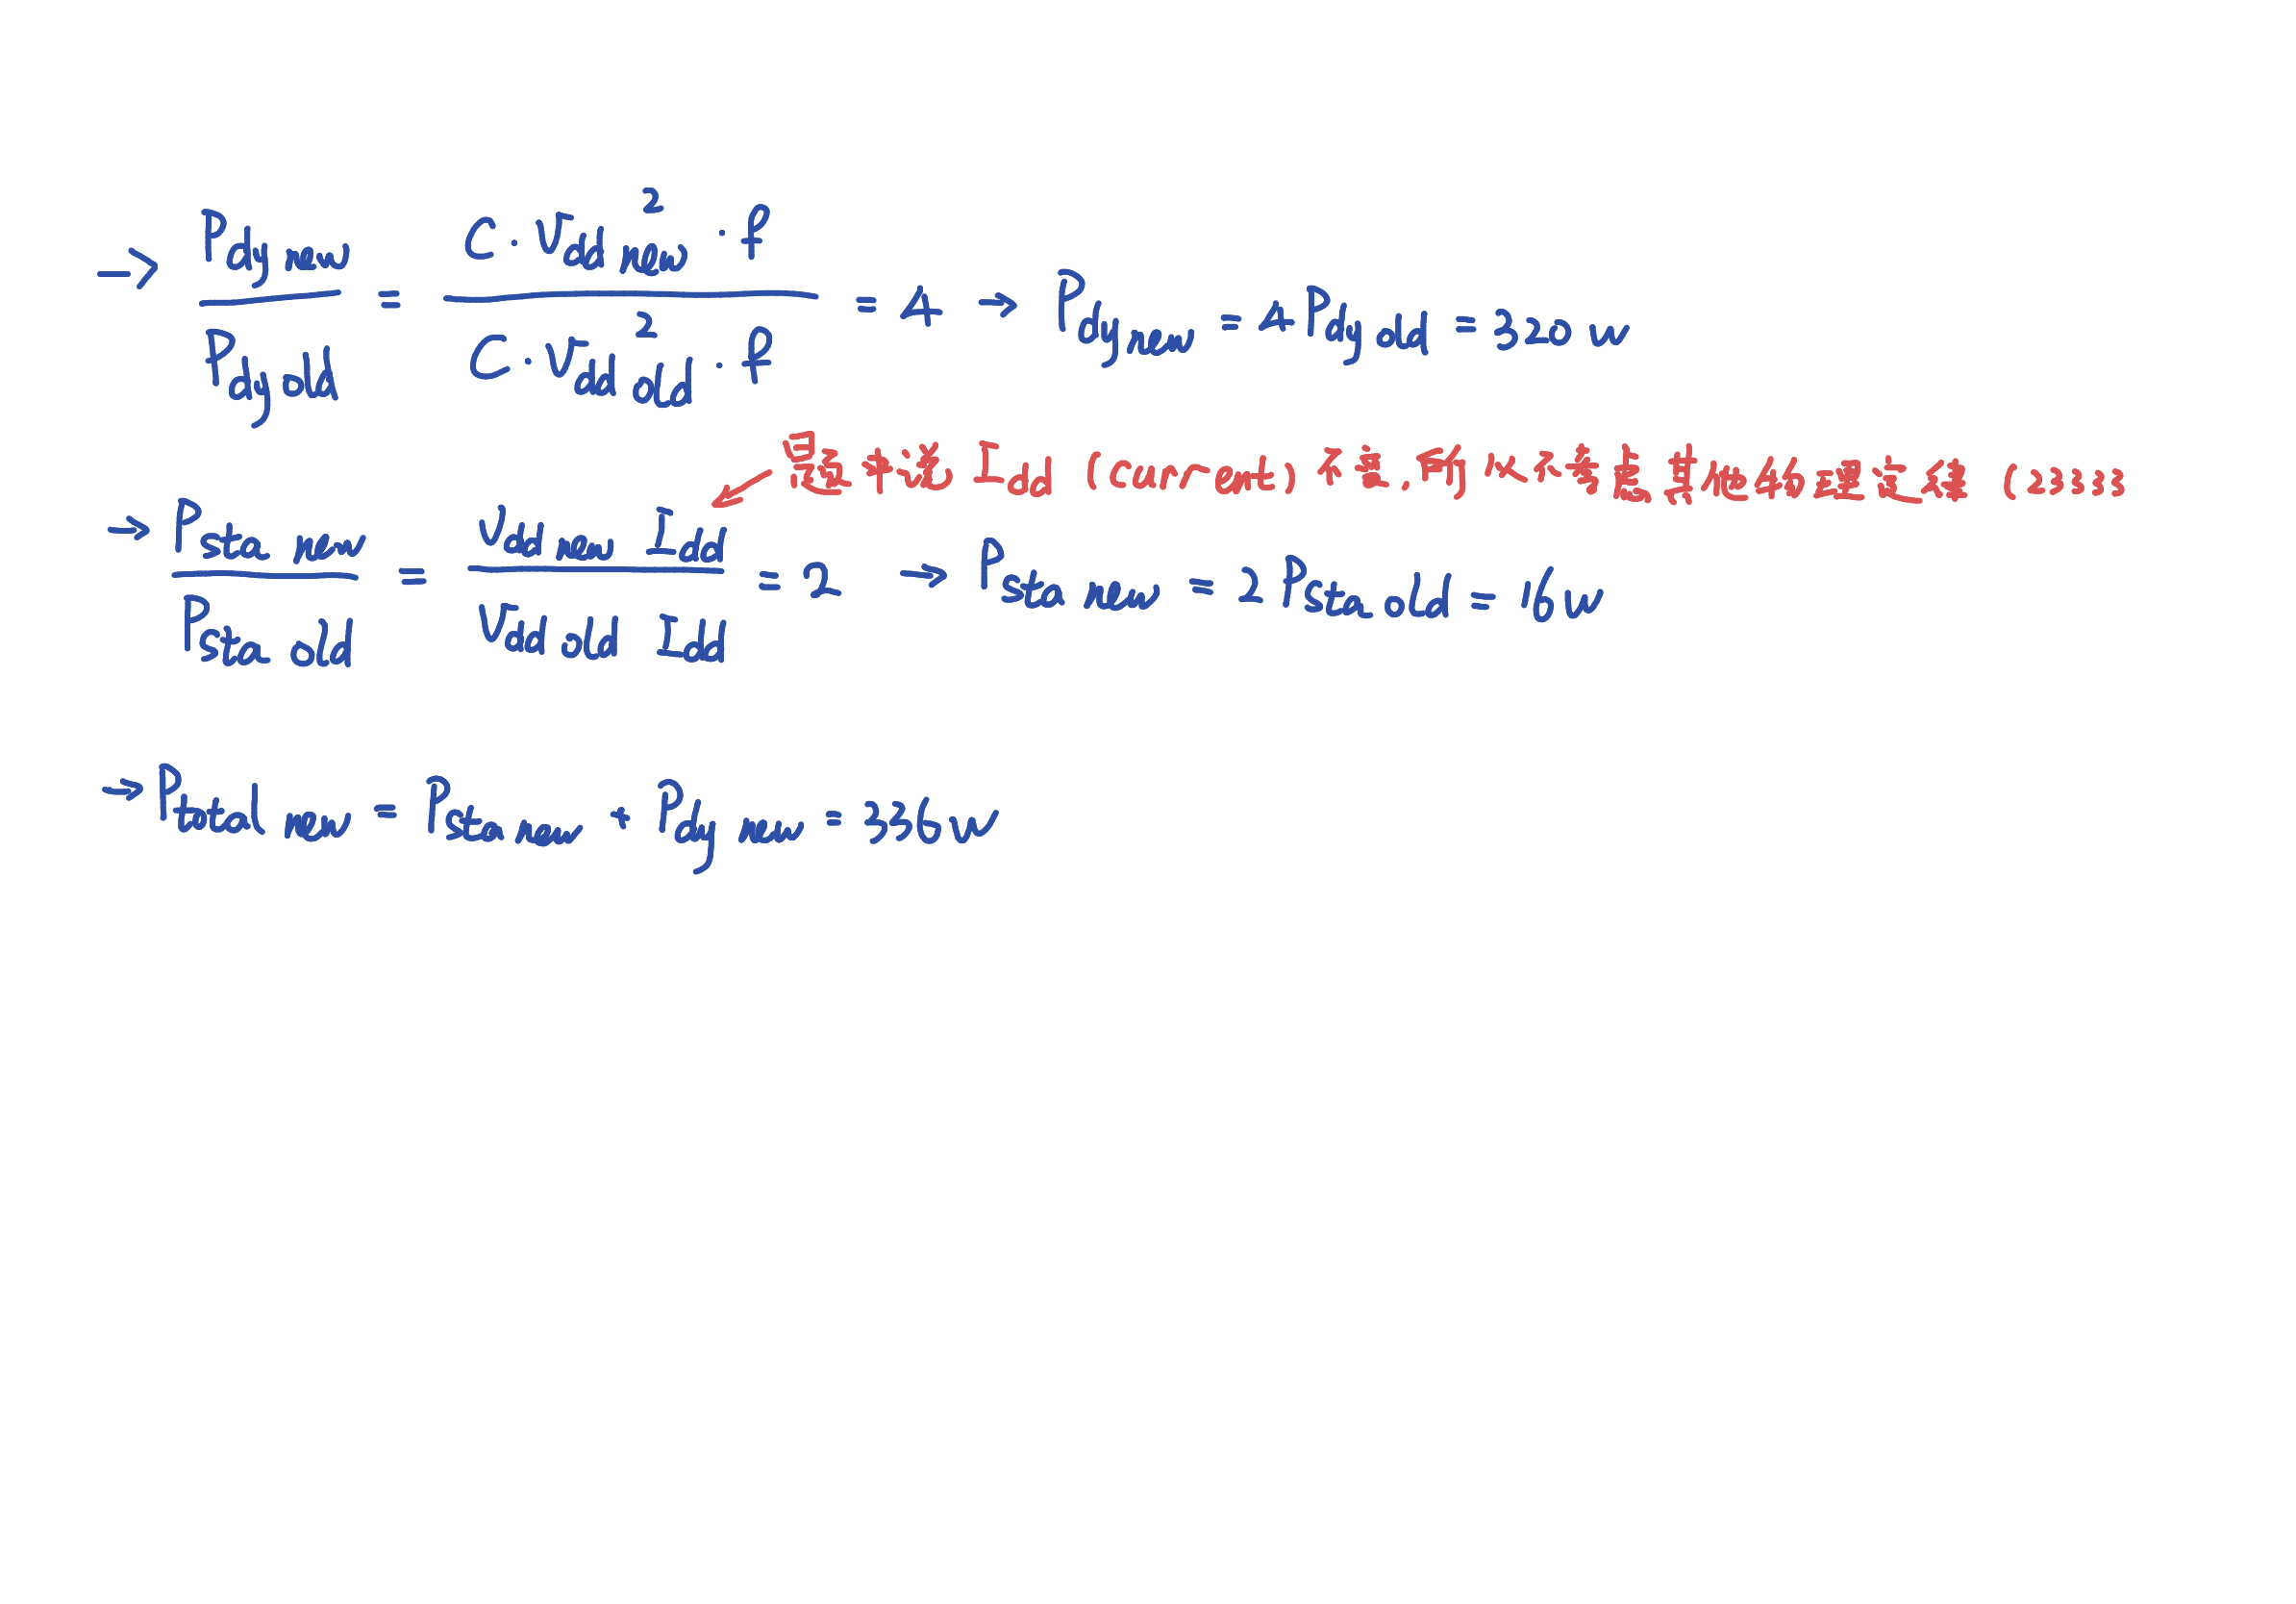 → P_dy new / P_dy old = C · V_dd new² · f / C · V_dd old² · f = 4 → P_dy new = 4 P_dy old = 320 w
题中说 I_dd (current) 不变, 所以不考虑其他物理定律 (23333
→ P_sta new / P_sta old = V_dd new I_dd / V_dd old I_dd = 2 → P_sta new = 2 P_sta old = 16 w
→ P_total new = P_sta new + P_dy new = 336 w